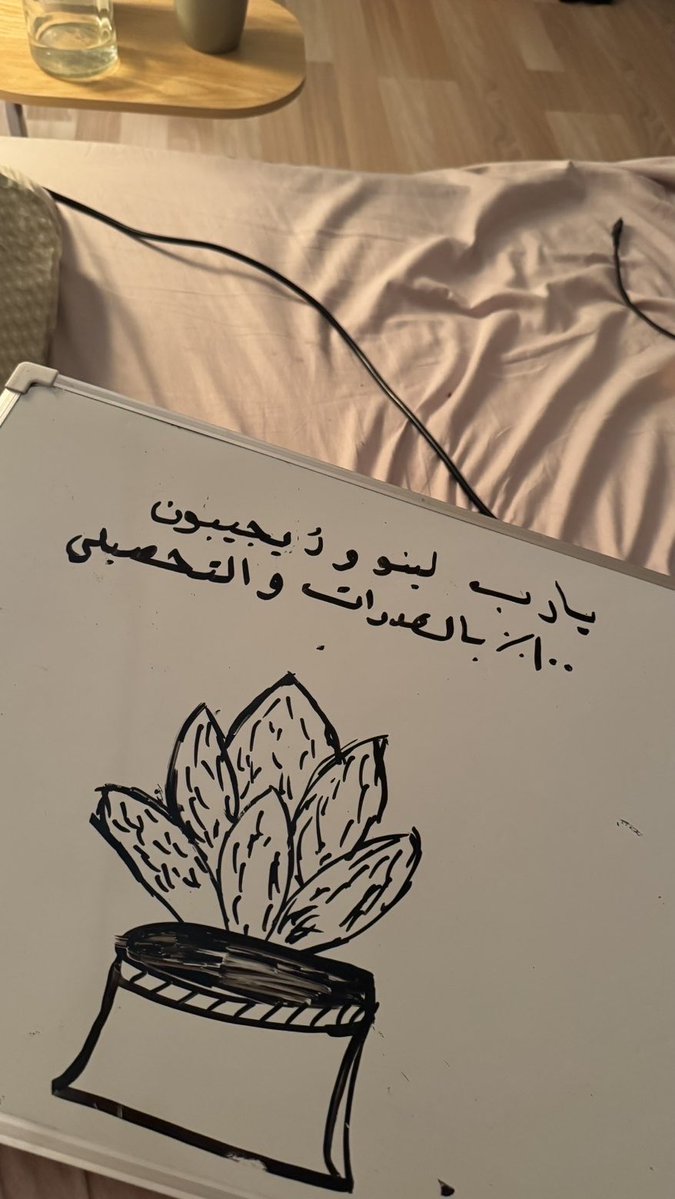 يارب لينو و دُ يجيبون
١٠٠٪ بالقدرات والتحصيلي